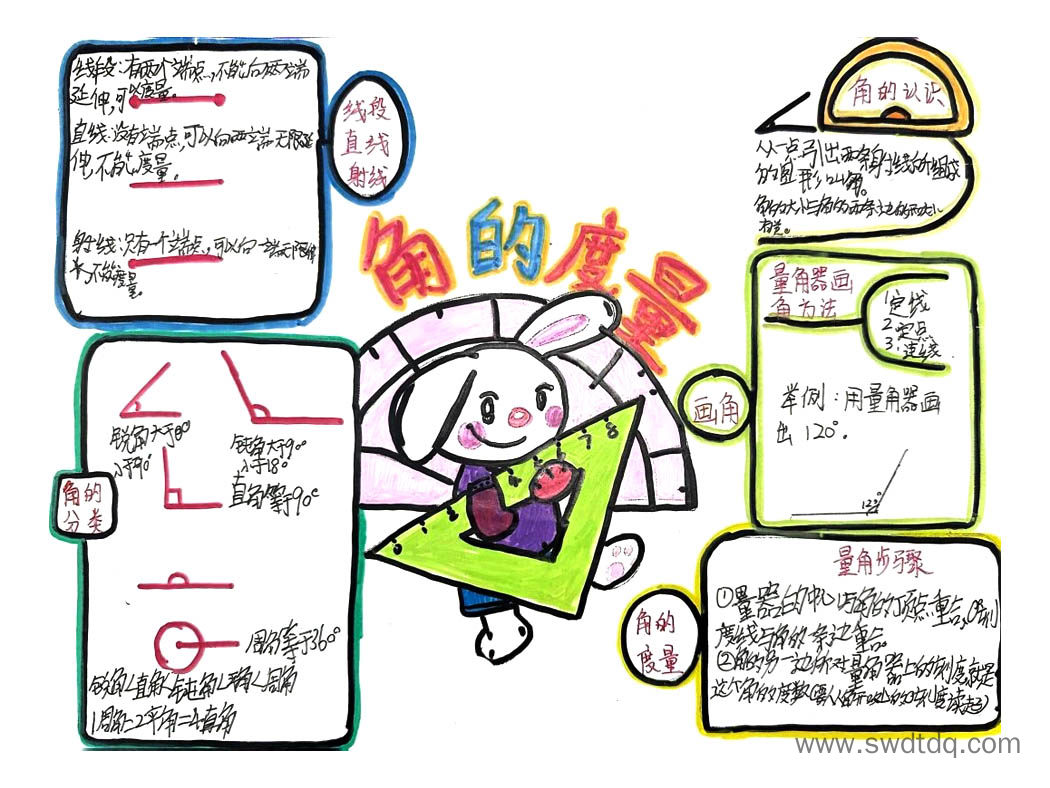 线段:有两个端点,不能向两端
延伸,可以度量。
直线:没有端点,可以向两端无限延
伸,不能度量。
射线:只有一个端点,可以向一端无限伸
长,不能度量。
线段
直线
射线
角的度量
角的认识
从一点引出两条射线所组成
的图形叫角。
角的大小与角的两条边的
有关。
量角器画
角方法
1定线
2.定点
3.连线
画角
举例:用量角器画
出120°.
120°
锐角大于0°
小于90°
钝角大于90°
小于18°
直角等于90°
角的
分类
周角等于360°
锐角<直角<钝角<平角<周角
1周角=2平角=4直角
0 1 2 3 4 5 6 7 8
角的
度量
量角步骤
①量器的中心与角的顶点重合,0°刻
度线与角的一条边重合。
②角的另一边所对量角器上的刻度就是
这个角的度数
www.swdtdq.com